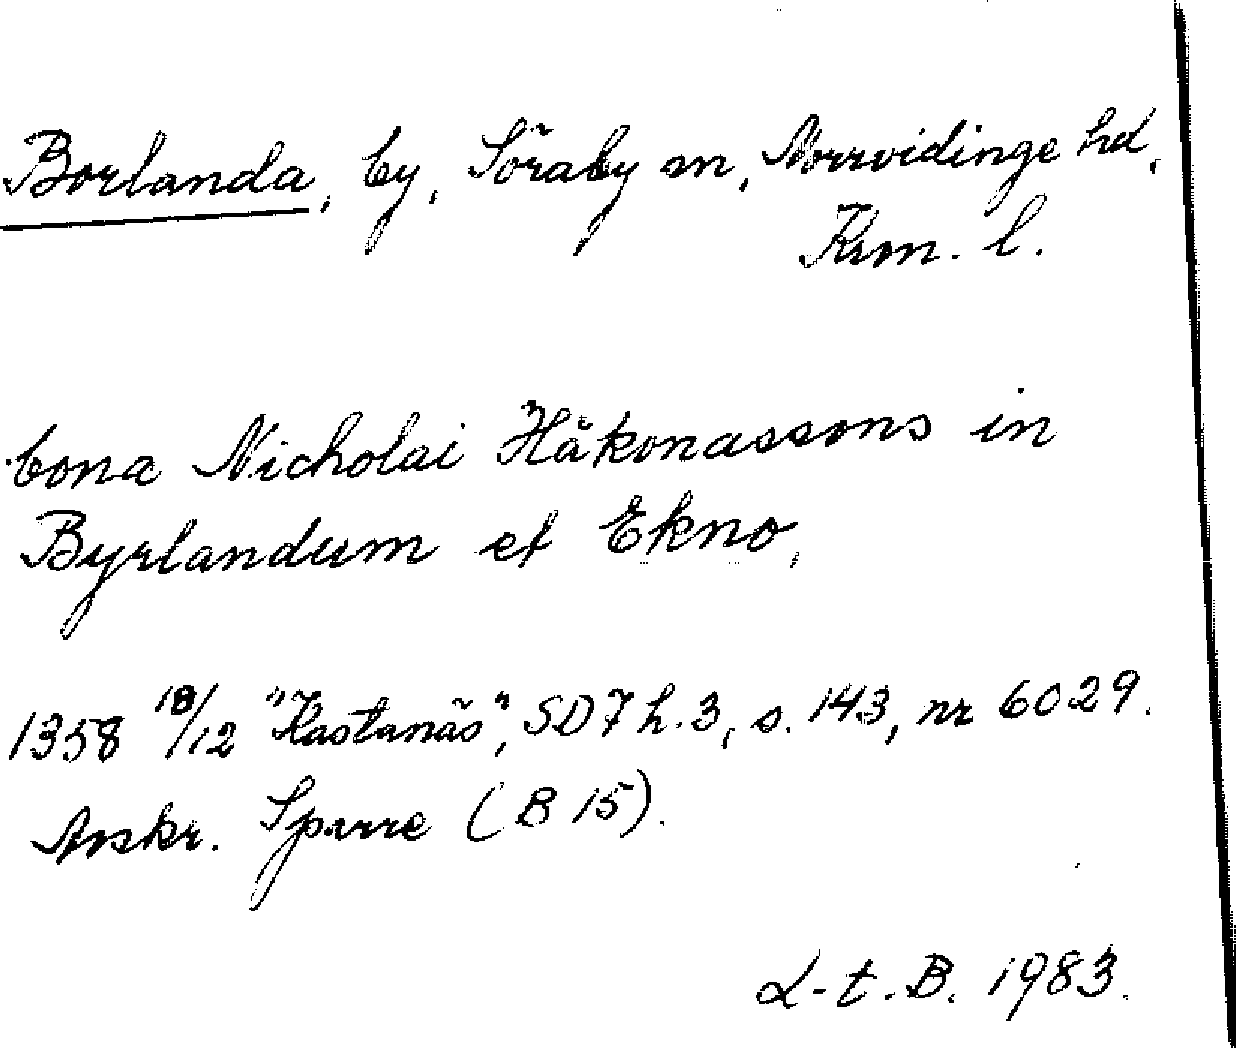 Borlanda, by, Söraby sn, Norrvidinge hd,
Krm. l.
bona Nicholai Håkonassons in
Byrlandum et Ekno,
1358 18/12 "Kastanäs", SD 7 h. 3, s. 143, nr 6029.
Avskr. Sparre (B 15).
L-t. B. 1983.